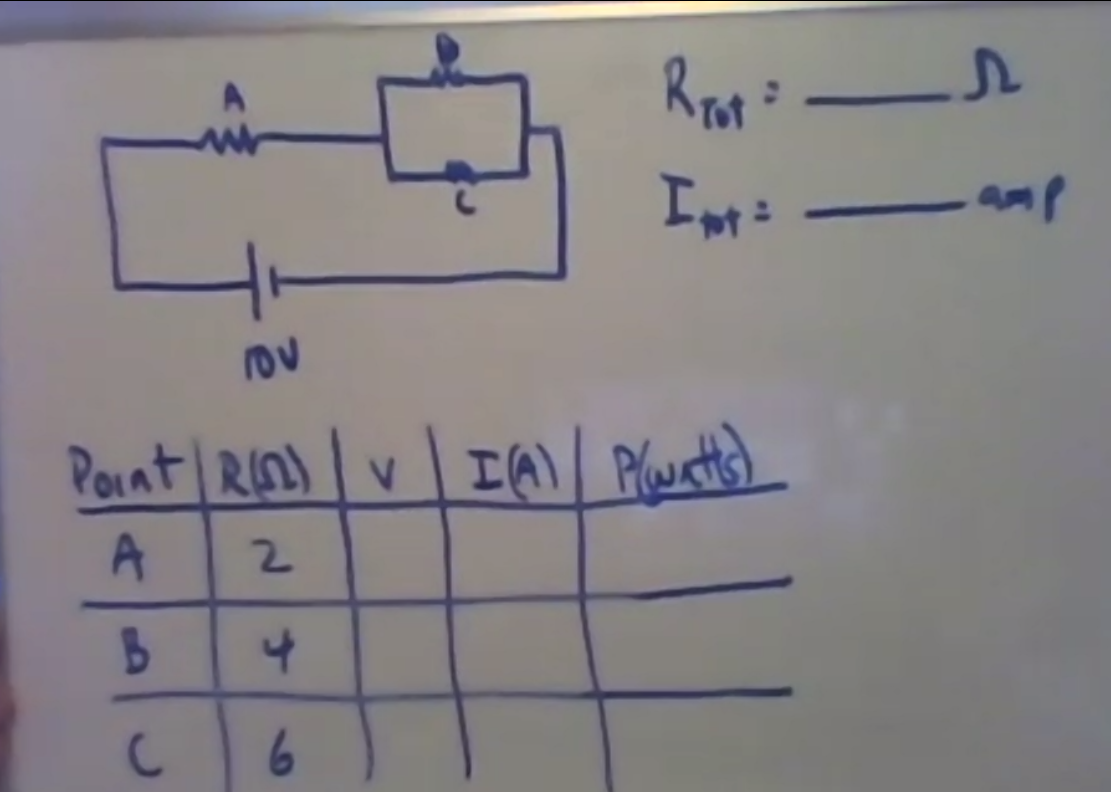 A
B
C
10V
R Tot = ____ Ω
I tot = ____ amp
Point R(Ω) V I(A) P(watts)
A 2
B 4
C 6